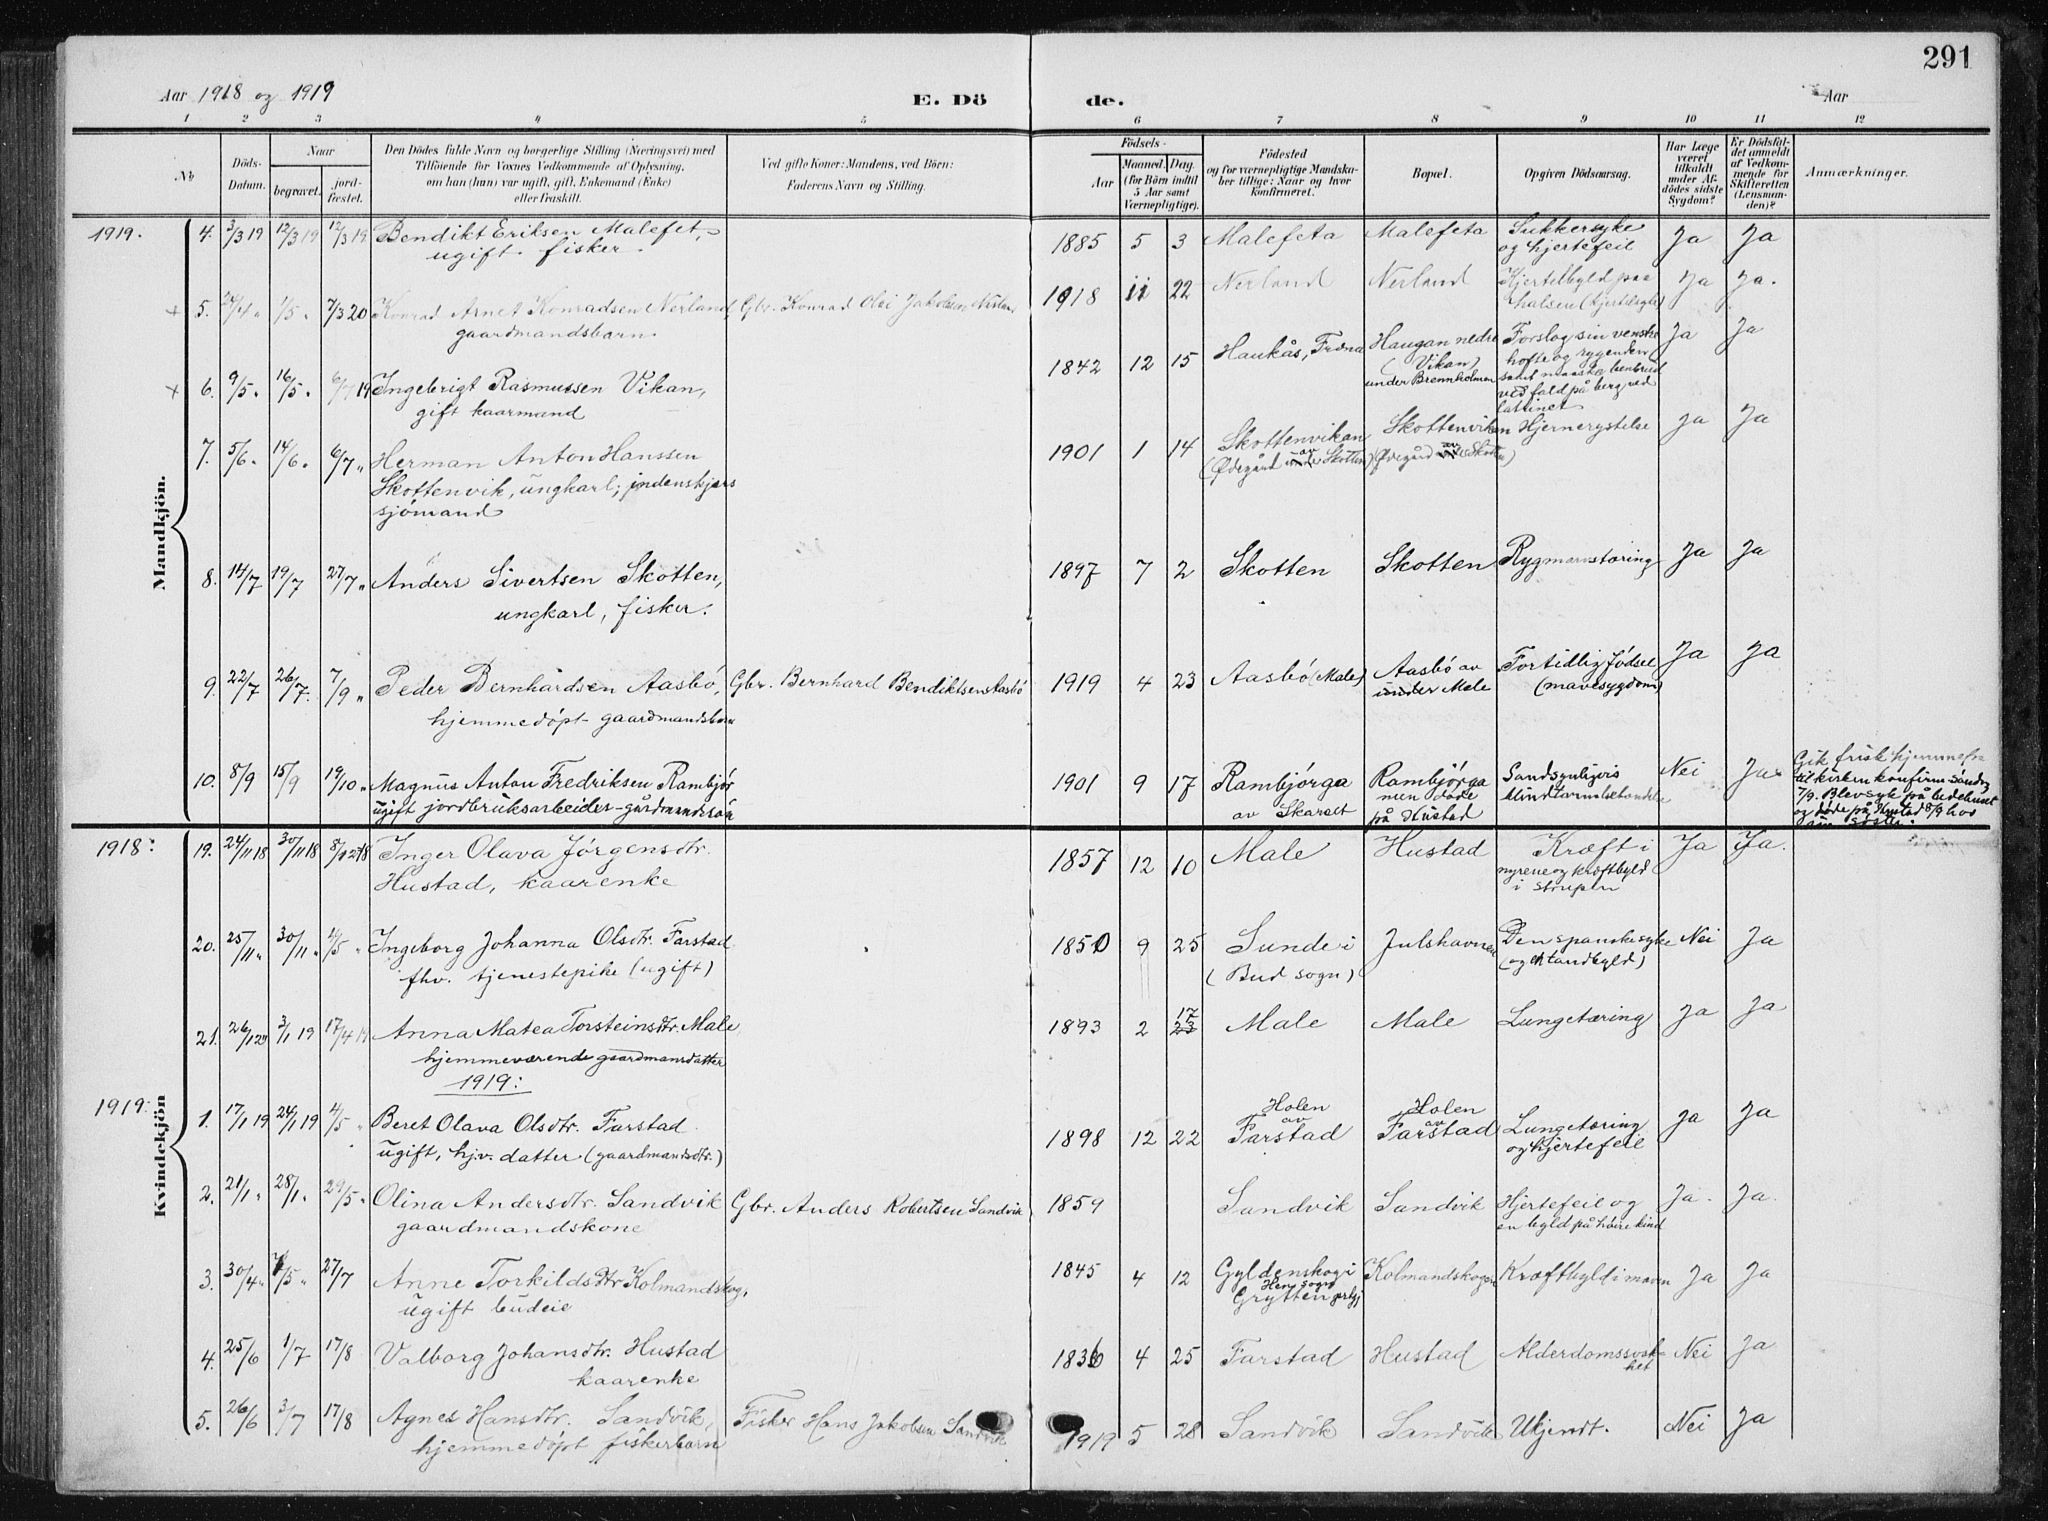 291
Aar 1918 og 1919
E. Dö
de.
Aar
1 2 3 4 5 6 7 8 9 10 11 12
No
Döds-Datum.
Naar
begravet.
jord-fæstet.
Den Dödes fulde Navn og borgerlige Stilling (Næringsvei) med
Tilföiende for Voxnes Vedkommende af Oplysning,
om han (hun) var ugift, gift, Enkemand (Enke)
eller fraskilt.
Ved gifte Koner: Mandens, ved Börn:
Faderens Navn og Stilling.
Födsels-
Aar
Maaned. Dag.
(for Börn indtil
5 Aar samt
Værnepligtige).
Födested
og for værnepligtige Mandska-
ber tillige: Naar og hvor
konfirmeret.
Bopæl.
Opgiven Dödsaarsag.
Har Læge
været
tilkaldt
under Af-
dödes sidste
Sygdom?
Er Dödsfal-
det anmeldt
af Vedkom-
mende for
Skifteretten
(Lensman-
den)?
Anmærkninger.
Mandkjön.
1919.
4. 3/3 19 12/3 19 12/3 19 Bendikt Eriksen Malefet, 1885 5 3 Malefeta Malefeta Sukkersyke Ja Ja
ugift fisker. og hjertefeil
5. 24/4 " 1/5 " 7/3 20 Konrad Arnet Konradsen Nerland, Gbr. Konrad Olai Jakobsen Nerland 1918 11 22 Nerland Nerland Ja Ja.
gaardmandsbarn. halsen
6. 9/5 " 16/5 " 6/7 19 Ingebrigt Rasmussen Vikan, 1842 12 15 Haukås, Fræna Haugan nedre Forslog sin venstre Ja Ja
gift kaarmand (Vikan) hofte og ryggenden
under Brennholmen samt maaske benbrud
ved fald på berg ved
7. 5/6 " 14/6 " 6/7 " Herman Anton Hanssen 1901 1 14 Skottenvikan Skottenvikan Hjernerystelse Ja Ja
Skottenvik, ungkarl; indenskjærs (Ødegård av Skotten) (Ødegård av Skotten)
sjömand
8. 14/7 19/7 27/7 " Anders Sivertsen Skotten, 1897 7 2 Skotten Skotten Rygmarvstæring Ja Ja
ungkarl, fisker.
9. 22/7 26/7. 7/9 " Peder Bernhardsen Aasbö, Gbr. Bernhard Bendiktsen Aasbö 1919 4 23 Aasbö (Male) Aasbö av Fortidlig födsel Ja Ja
hjemmedöpt gaardmandsbarn under Male (mavesygdom)
10. 8/9 15/9 19/10 " Magnus Anton Fredriksen Rambjör 1901 9 17 Rambjörga Rambjörga Sandsynligvis Nei Ja
ugift jordbruksarbeider - gårdmandssön av Skaret men döde blindtarmsbetændelse
på Hustad
Gik frisk hjemmefra
til kirken konfirm.söndag
7/9. Blev syk på bedehuset
og döde på Hustad 8/9 hos
sin söster.
Kvindekjön
1918:
19. 24/11 18 30/11 18 8/12 18 Inger Olava Jörgensdtr. 1857 12 10 Male Hustad Kræft i Ja Ja.
Hustad, kaarenke nyrene og kræftbyld
i strupen
20. 25/11 " 30/11 " 4/5 " Ingeborg Johanna Olsdtr. Farstad 1850 9 25 Sunde i Julshavnen Den spanske syke Nei Ja
fhv. tjenestepike (ugift) (Bud sogn) (og tandbyld)
21. 26/12 " 3/1 19 17/4 19 Anna Matea Torsteinsdtr. Male, 1893 2 17 23 Male Male Lungetæring Ja Ja
hjemmeværende gaardmansdatter
1919:
1919:
1. 17/1 19 24/1 19 4/5 " Beret Olava Olsdtr. Farstad 1898 12 22 Holen av Farstad Holen av Farstad Lungetæring Ja Ja
ugift, hjv. datter (gaardmandsdtr.) og hjertefeil
2. 21/1 " 28/1 " 29/5 " Olina Andersdtr. Sandvik Gbr. Anders Robertsen Sandvik 1859 Sandvik Sandvik Hjertefeil og Ja. Ja.
gaardmandskone en byld på höire kind
3. 30/4 " /5 " 27/7 Anne Torkildsdtr Kolmandskog, 1845 4 12 Gyldenskog i Kolmandskogen Kræftbyld i maven Ja Ja
ugift budeie Hen sogn
Grytten prgj
4. 25/6 1/7 17/8 Valborg Johansdtr. Hustad 1836 4 25 Farstad Hustad Alderdomssvakhet Nei Ja
kaarenke
5. 26/6 3/7 17/8 Agnes Hansdtr. Sandvik, Fisker Hans Jakobsen Sandvik 1919 5 28 Sandvik Sandvik Ukjendt. Nei Ja
hjemmedöpt fiskerbarn